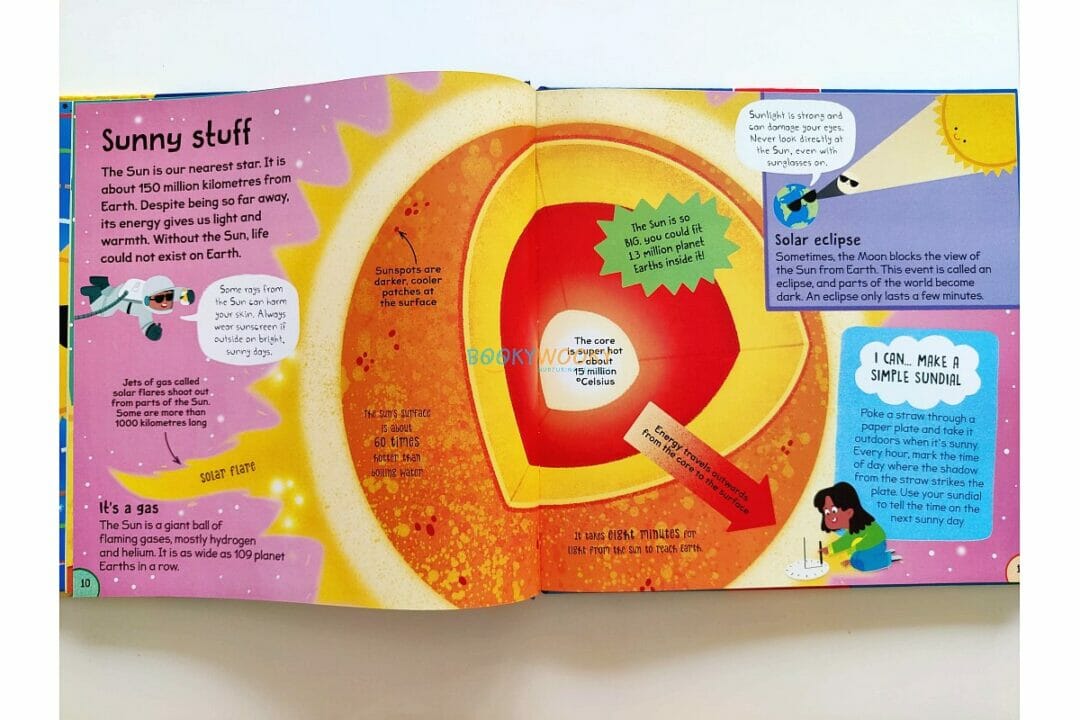 Sunny stuff
The Sun is our nearest star. It is
about 150 million kilometres from
Earth. Despite being so far away,
its energy gives us light and
warmth. Without the Sun, life
could not exist on Earth.
Some rays from
the Sun can harm
your skin. Always
wear sunscreen if
outside on bright,
sunny days.
Jets of gas called
solar flares shoot out
from parts of the Sun.
Some are more than
1000 kilometres long
solar flare
It's a gas
The Sun is a giant ball of
flaming gases, mostly hydrogen
and helium. It is as wide as 109 planet
Earths in a row.
10
Sunspots are
darker, cooler
patches at
the surface
The Sun's surface
is about
60 times
hotter than
boiling water
The core
is super hot
about
15 million
°Celsius
BOOKYWOO
NURTURING
The Sun is so
BIG, you could fit
1.3 million planet
Earths inside it!
Energy travels outwards
from the core to the surface
It takes eight minutes for
light from the sun to reach Earth.
Sunlight is strong and
can damage your eyes.
Never look directly at
the Sun, even with
sunglasses on.
Solar eclipse
Sometimes, the Moon blocks the view of
the Sun from Earth. This event is called an
eclipse, and parts of the world become
dark. An eclipse only lasts a few minutes.
I CAN... MAKE A
SIMPLE SUNDIAL
Poke a straw through a
paper plate and take it
outdoors when it's sunny.
Every hour, mark the time
of day where the shadow
from the straw strikes the
plate. Use your sundial
to tell the time on the
next sunny day